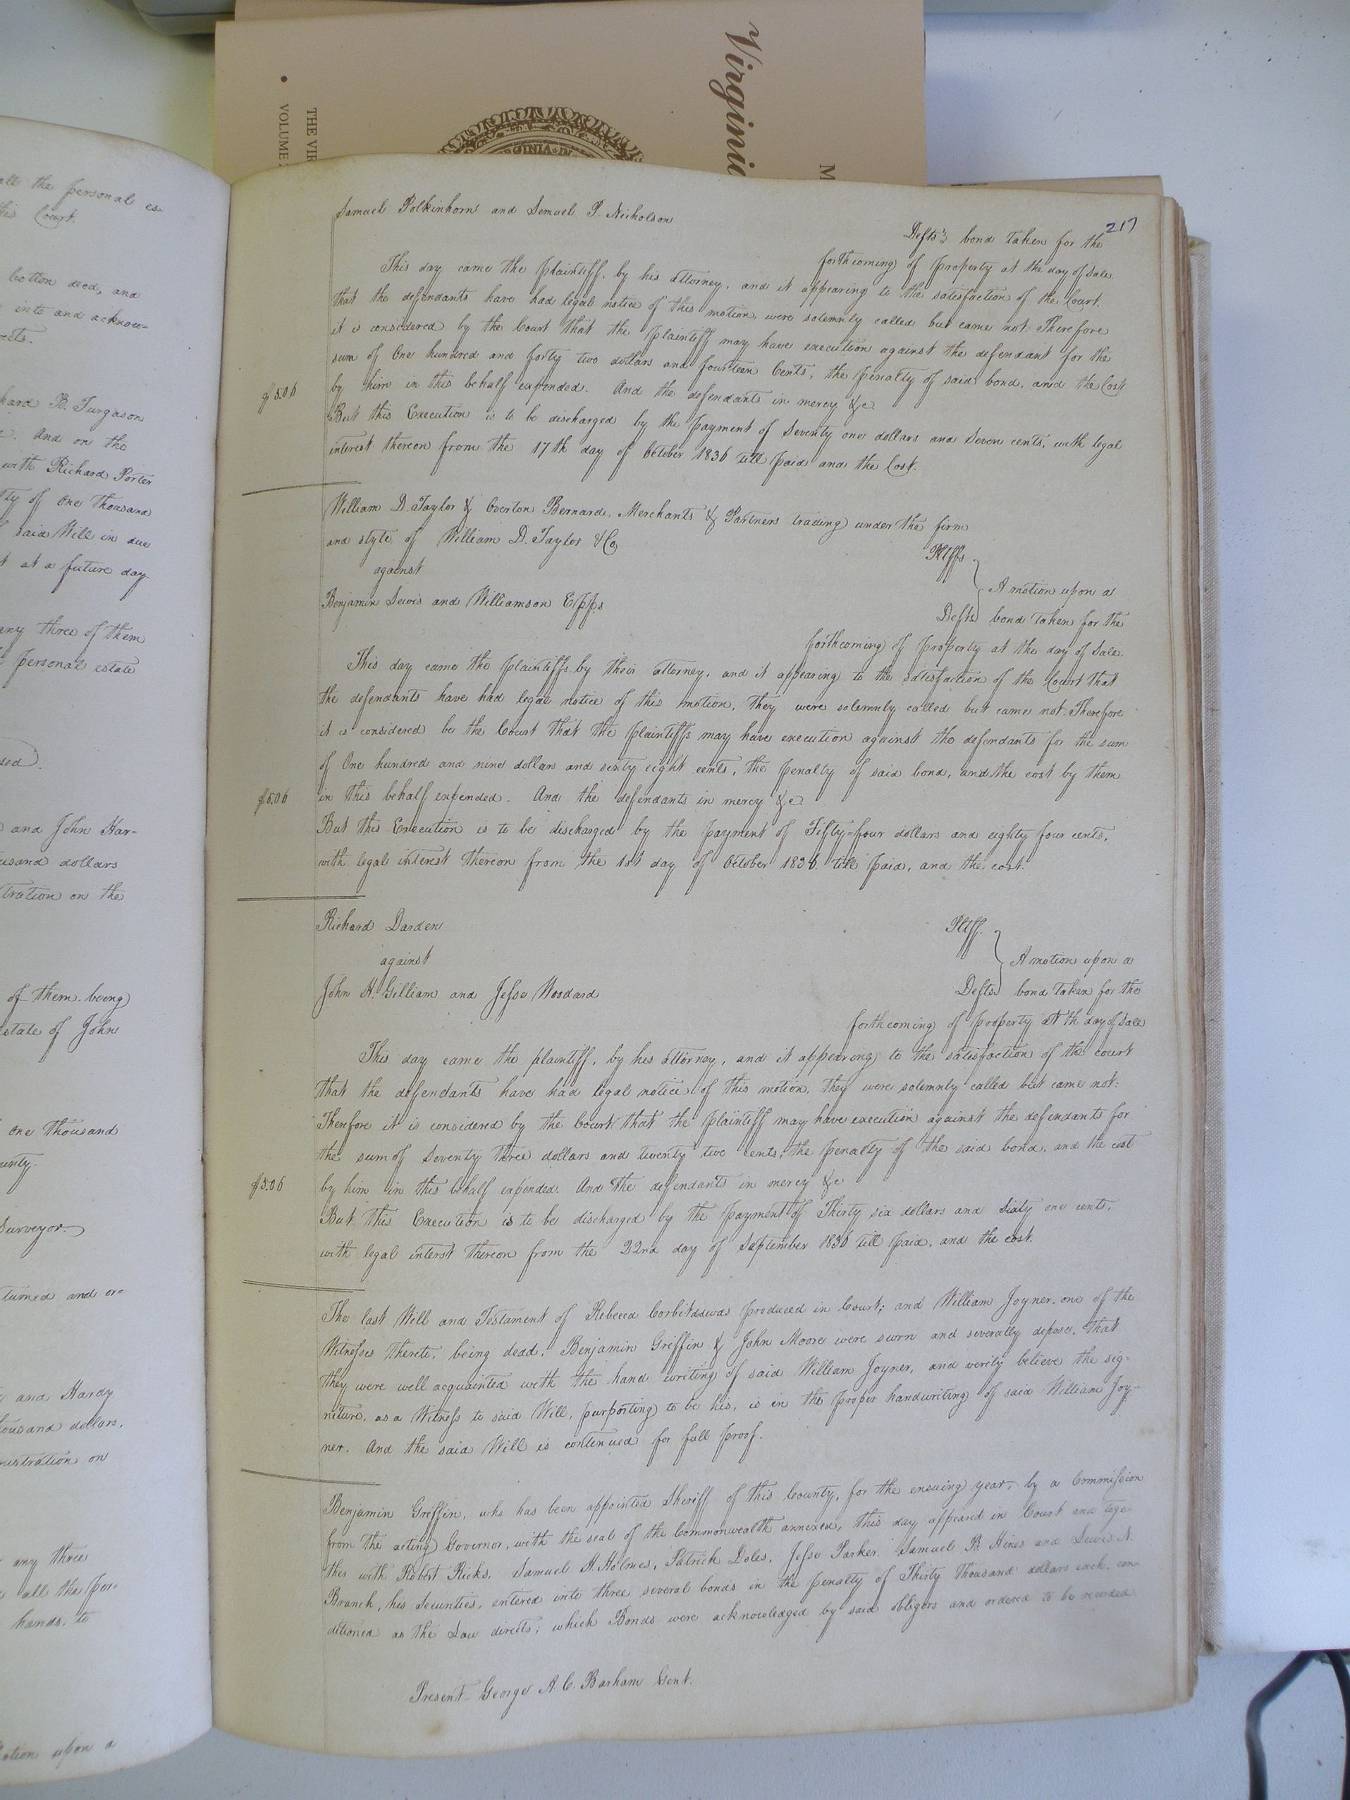 Virginia
M
THE VIR
VOLUME
GINIA
all the personal es-
this Court.
botton deed, and
into and acknow-
hard B. Turgason
And on the
with Richard Porter
of One Thousand
said Will in due
at a future day
any three of them
personal estate
and John Har-
usand dollars
tration on the
of them being
estate of John
one thousand
unty.
Surveyor
turned and or-
and Hardy
housand dollars.
nistration on
any three
all the per-
hands, to
otion upon a
217
Samuel Polkinhorn and Lemuel P. Nicholson
Defts. bond taken for the
forthcoming of property at the day of Sale
This day came the plaintiff, by his attorney, and it appearing to the satisfaction of the Court.
that the defendants have had legal notice of this motion, were solemnly called but came not: Therefore
it is considered by the Court that the plaintiff may have execution against the defendant for the
sum of One hundred and forty two dollars and fourteen Cents, the penalty of said bond, and the Cost
$5.06
by him in this behalf expended. And the defendants in mercy &c
But this Execution is to be discharged by the payment of Seventy one dollars and Seven cents, with legal
interest thereon from the 17th day of October 1836 till paid and the Cost.
William D. Taylor & Overton Bernard, Merchants & Partners trading under the firm
and style of William D. Taylor & Co
Pltffs
against
A motion upon a
Benjamin Lewis and Williamson Epps
Defts bond taken for the
forthcoming of property at the day of Sale.
This day came the plaintiffs by their attorney, and it appearing to the satisfaction of the Court that
the defendants have had legal notice of this motion, they were solemnly called but came not: Therefore
it is considered be the Court that the plaintiffs may have execution against the defendants for the sum
of One hundred and nine dollars and sixty eight cents, the penalty of said bond, and the cost by them
$5.06
in this behalf expended. And the defendants in mercy &c
But this Execution is to be discharged by the payment of Fifty-four dollars and eighty four cents,
with legal interest thereon from the 1st day of October 1836 till paid, and the cost.
Richard Darden
Pltff.
against
A motion upon a
John H. Gilliam and Jesse Woodard
Defts bond taken for the
forthcoming of property at th day of Sale
This day came the plaintiff, by his attorney, and it appearing to the satisfaction of the court
that the defendants have had legal notice of this motion, they were solemnly called but came not:
Therefore it is considered by the Court that the plaintiff may have execution against the defendants for
the sum of Seventy three dollars and twenty two cents, the penalty of the said bond, and the cost
$5.06
by him in this behalf expended. And the defendants in mercy &c
But this Execution is to be discharged by the payment of Thirty six dollars and Sixty one cents,
with legal interst thereon from the 22nd day of September 1836 till paid, and the cost.
The last Will and Testament of Rebecca was produced in Court; and William Joyner, one of the
Witnesses thereto, being dead, Benjamin Griffin & John Moore were sworn and severally depose, that
they were well acquainted with the hand writing of said William Joyner, and verily believe the sig-
nature, as a Witness to said Will, purporting to be his, is in the proper handwriting of said William Joy-
ner. And the said Will is continued for full proof.
Benjamin Griffin, who has been appointed Sheriff of this County, for the ensuing year, by a Commission
from the acting Governor, with the seal of the Commonwealth annexed, this day appeared in Court and toge-
ther with Robert Ricks, Samuel H. Holmes, Patrick Doles, Jesse Parker, Samuel B. Hines and Lewis N.
Branch, his Securities, entered into three several bonds in the penalty of Thirty Thousand dollars each, con-
ditioned as the Law directs; which Bonds were acknowledged by said obligors and ordered to be recorded
Present George A. C. Barham Gent.